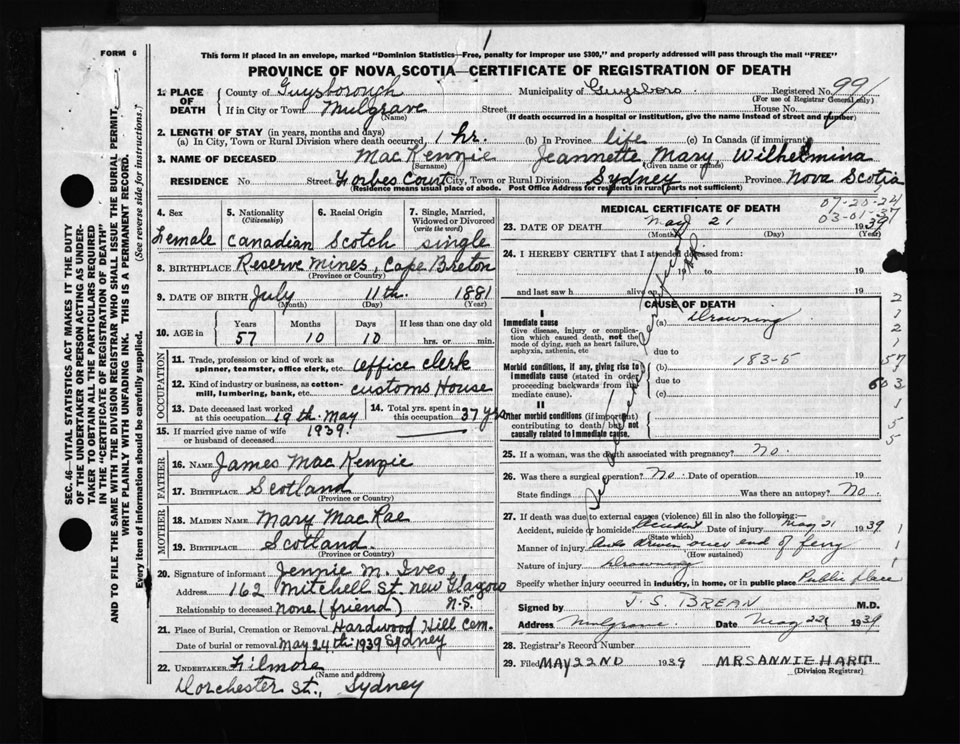 FORM 6
1
This form if placed in an envelope, marked "Dominion Statistics—Free, penalty for improper use $300," and properly addressed will pass through the mail "FREE"
PROVINCE OF NOVA SCOTIA—CERTIFICATE OF REGISTRATION OF DEATH
1. PLACE OF DEATH
County of Guysborough Municipality of Guysboro Registered No. 991
(For use of Registrar General only)
If in City or Town Mulgrave Street House No.
(Name) (If death occurred in a hospital or institution, give the name instead of street and number)
2. LENGTH OF STAY (in years, months and days)
(a) In City, Town or Rural Division where death occurred, 1 hr. (b) In Province life (c) In Canada (if immigrant)
3. NAME OF DECEASED MacKenzie Jeannette Mary Wilhelmina
(Surname) (Given name or names)
RESIDENCE No. Street Forbes Court City, Town or Rural Division Sydney Province Nova Scotia
(Residence means usual place of abode. Post Office Address for residents in rural parts not sufficient)
4. Sex 5. Nationality (Citizenship) 6. Racial Origin 7. Single, Married, Widowed or Divorced (write the word)
Female Canadian Scotch single
8. BIRTHPLACE Reserve Mines, Cape Breton
(Province or Country)
9. DATE OF BIRTH July 11th 1881
(Month) (Day) (Year)
10. AGE in Years Months Days If less than one day old
57 10 10 hrs. or min.
OCCUPATION
11. Trade, profession or kind of work as spinner, teamster, office clerk, etc. office clerk
12. Kind of industry or business, as cotton-mill, lumbering, bank, etc. Customs House
13. Date deceased last worked at this occupation 19th May 1939. 14. Total yrs. spent in this occupation 37 yrs
15. If married give name of wife or husband of deceased
FATHER
16. NAME James MacKenzie
17. BIRTHPLACE Scotland
(Province or Country)
MOTHER
18. MAIDEN NAME Mary MacRae
19. BIRTHPLACE Scotland.
(Province or Country)
20. Signature of informant Jennie M. Ives
Address 162 Mitchell St. New Glasgow N.S.
Relationship to deceased none (friend)
21. Place of Burial, Cremation or Removal Hardwood Hill Cem.
Date of burial or removal May 24th 1939 Sydney
22. UNDERTAKER Filmore
(Name and address)
Dorchester St., Sydney
MEDICAL CERTIFICATE OF DEATH
07-20-24
03-01-37
23. DATE OF DEATH May 21 1939
(Month) (Day) (Year)
24. I HEREBY CERTIFY that I attended deceased from:
19 to 19
and last saw h alive on 19
CAUSE OF DEATH
I
Immediate cause
Give disease, injury or complication which caused death, not the mode of dying, such as heart failure, asphyxia, asthenia, etc
(a) Drowning
due to
Morbid conditions, if any, giving rise to immediate cause (stated in order proceeding backwards from immediate cause).
(b) 183-5
due to
(c)
II
Other morbid conditions (if important) contributing to death but not causally related to immediate cause.
25. If a woman, was the death associated with pregnancy? No.
26. Was there a surgical operation? No. Date of operation 19
State findings Was there an autopsy? No.
27. If death was due to external causes (violence) fill in also the following:—
Accident, suicide or homicide? Accident Date of injury May 21 1939
(State which)
Manner of injury Auto driven over end of ferry
(How sustained)
Nature of injury Drowning
Specify whether injury occurred in industry, in home, or in public place Public place
Signed by J. S. BREAN M.D.
Address Mulgrave. Date May 22 1939
28. Registrar's Record Number
29. Filed MAY 22ND 1939 MRS ANNIE HART
(Division Registrar)
SEC. 46—VITAL STATISTICS ACT MAKES IT THE DUTY
OF THE UNDERTAKER OR PERSON ACTING AS UNDER-
TAKER TO OBTAIN ALL THE PARTICULARS REQUIRED
IN THE "CERTIFICATE OF REGISTRATION OF DEATH"
AND TO FILE THE SAME WITH THE DIVISION REGISTRAR WHO SHALL ISSUE THE BURIAL PERMIT.
WRITE PLAINLY WITH UNFADING INK. THIS IS A PERMANENT RECORD.
Every item of information should be carefully supplied. (See reverse side for instructions.)